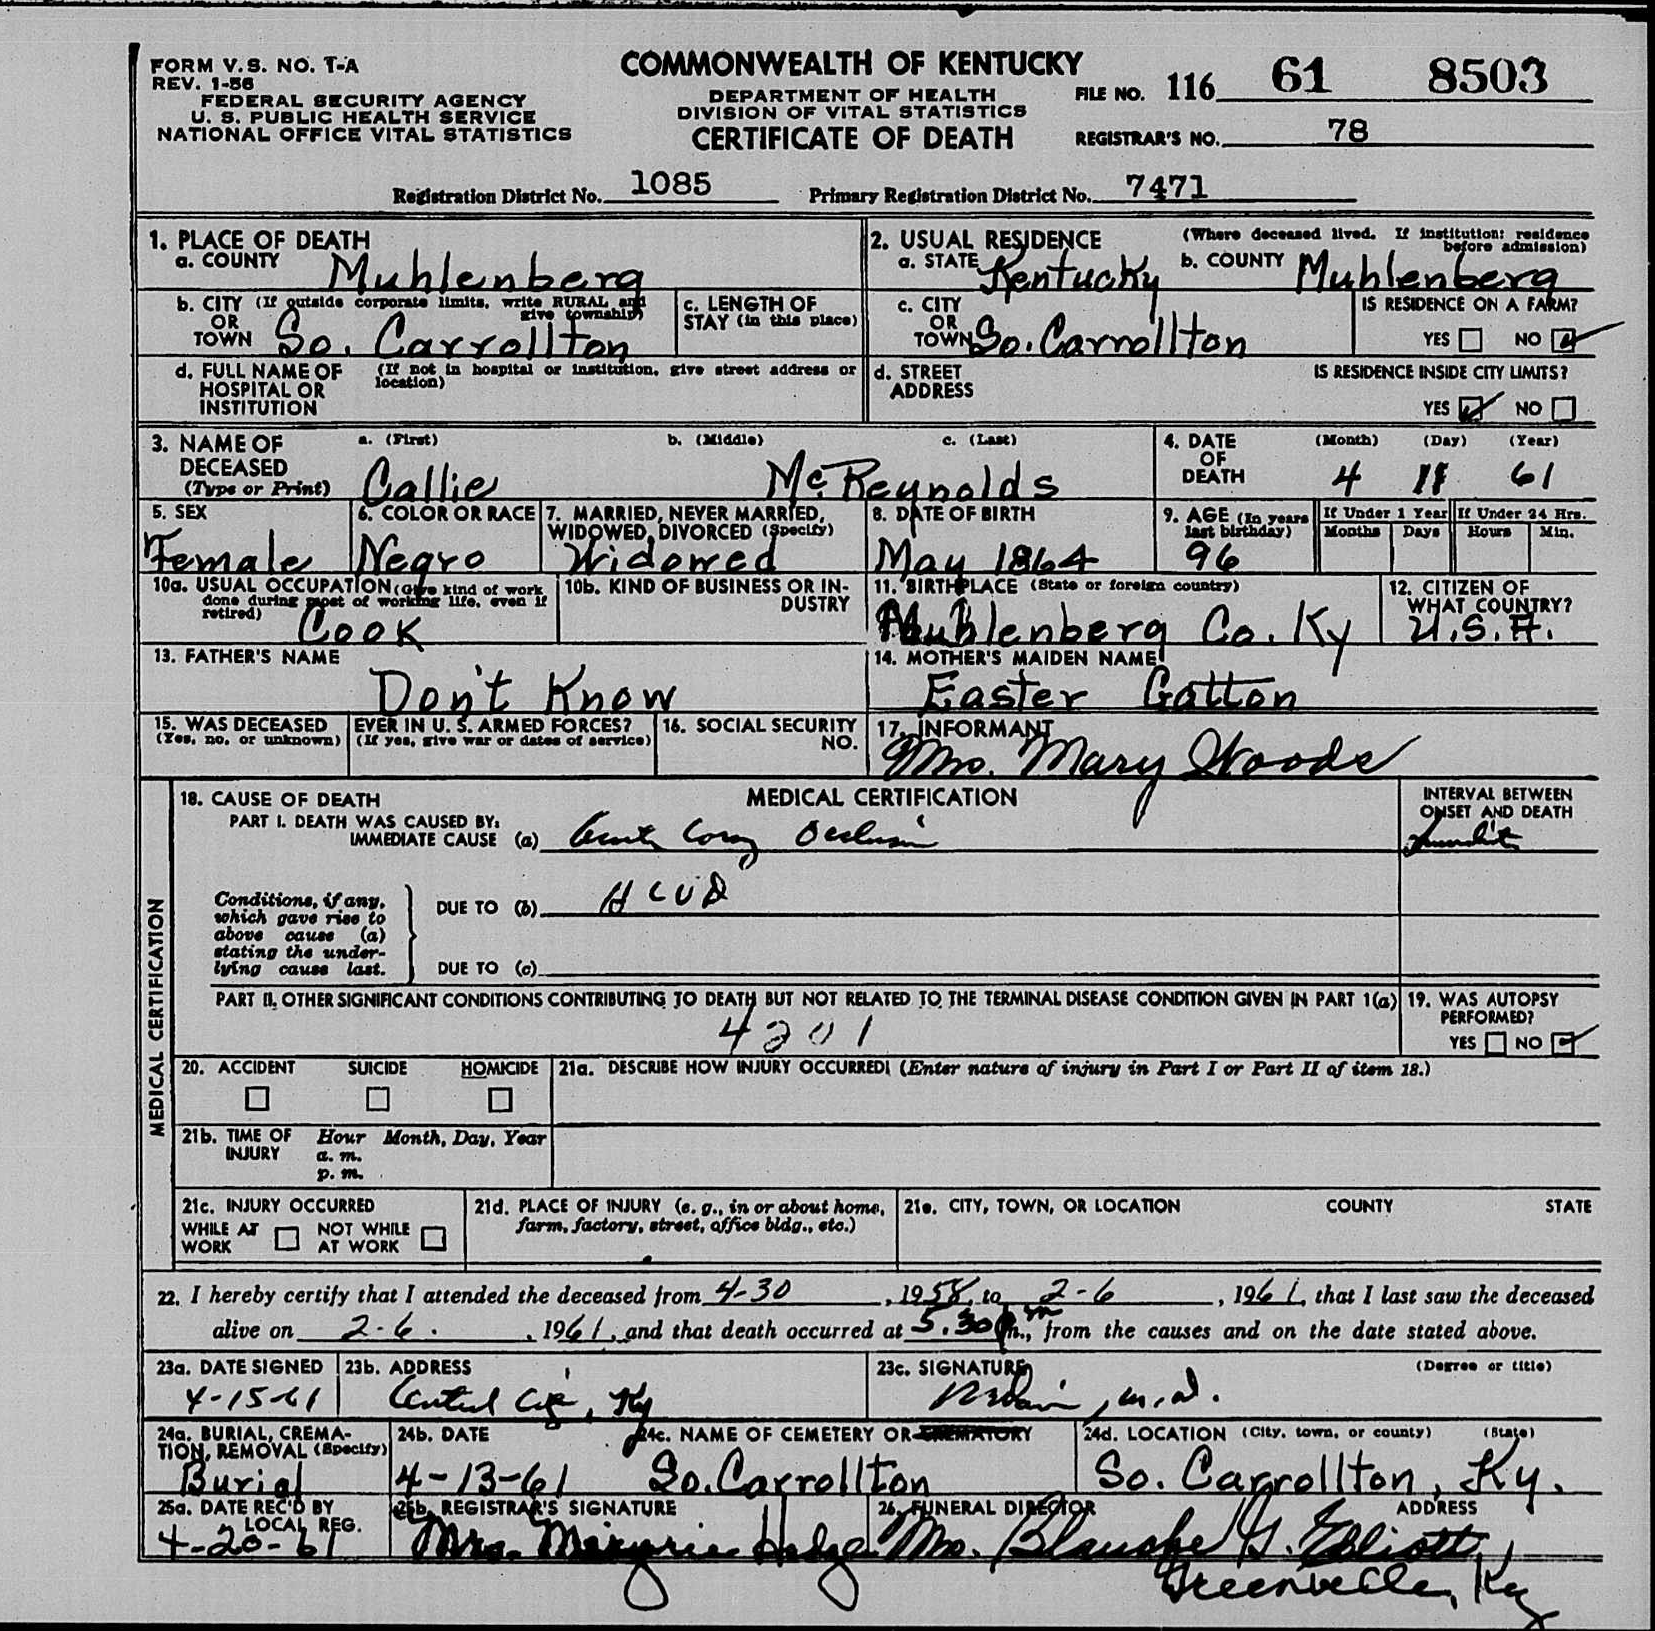 FORM V.S. NO. 1-A
REV. 1-56
FEDERAL SECURITY AGENCY
U. S. PUBLIC HEALTH SERVICE
NATIONAL OFFICE VITAL STATISTICS
COMMONWEALTH OF KENTUCKY
DEPARTMENT OF HEALTH
DIVISION OF VITAL STATISTICS
CERTIFICATE OF DEATH
FILE NO. 116 61 8503
REGISTRAR'S NO. 78
Registration District No. 1085 Primary Registration District No. 7471
1. PLACE OF DEATH
a. COUNTY Muhlenberg
2. USUAL RESIDENCE (Where deceased lived. If institution: residence before admission)
a. STATE Kentucky b. COUNTY Muhlenberg
b. CITY OR TOWN (If outside corporate limits, write RURAL and give township) So. Carrollton
c. LENGTH OF STAY (in this place)
c. CITY OR TOWN So. Carrollton
IS RESIDENCE ON A FARM?
YES NO
d. FULL NAME OF HOSPITAL OR INSTITUTION (If not in hospital or institution, give street address or location)
d. STREET ADDRESS
IS RESIDENCE INSIDE CITY LIMITS?
YES NO
3. NAME OF DECEASED (Type or Print) a. (First) b. (Middle) c. (Last)
Callie McReynolds
4. DATE OF DEATH (Month) (Day) (Year)
4 11 61
5. SEX Female
6. COLOR OR RACE Negro
7. MARRIED, NEVER MARRIED, WIDOWED, DIVORCED (Specify) Widowed
8. DATE OF BIRTH May 1864
9. AGE (In years last birthday) 96
If Under 1 Year Months Days
If Under 24 Hrs. Hours Min.
10a. USUAL OCCUPATION (Give kind of work done during most of working life, even if retired) Cook
10b. KIND OF BUSINESS OR INDUSTRY
11. BIRTHPLACE (State or foreign country) Muhlenberg Co. Ky
12. CITIZEN OF WHAT COUNTRY? U.S.A.
13. FATHER'S NAME Don't Know
14. MOTHER'S MAIDEN NAME Easter Gatton
15. WAS DECEASED EVER IN U. S. ARMED FORCES?
(Yes, no, or unknown) (If yes, give war or dates of service)
16. SOCIAL SECURITY NO.
17. INFORMANT Mrs. Mary Woods
MEDICAL CERTIFICATION
18. CAUSE OF DEATH
MEDICAL CERTIFICATION
INTERVAL BETWEEN ONSET AND DEATH
PART I. DEATH WAS CAUSED BY:
IMMEDIATE CAUSE (a)
Conditions, if any, which gave rise to above cause (a) stating the underlying cause last.
DUE TO (b) HCVD
DUE TO (c)
PART II. OTHER SIGNIFICANT CONDITIONS CONTRIBUTING TO DEATH BUT NOT RELATED TO THE TERMINAL DISEASE CONDITION GIVEN IN PART 1(a)
4201
19. WAS AUTOPSY PERFORMED?
YES NO
20. ACCIDENT SUICIDE HOMICIDE
21a. DESCRIBE HOW INJURY OCCURRED! (Enter nature of injury in Part I or Part II of item 18.)
21b. TIME OF INJURY Hour Month, Day, Year
a. m.
p. m.
21c. INJURY OCCURRED
WHILE AT WORK NOT WHILE AT WORK
21d. PLACE OF INJURY (e. g., in or about home, farm, factory, street, office bldg., etc.)
21e. CITY, TOWN, OR LOCATION COUNTY STATE
22. I hereby certify that I attended the deceased from 4-30, 1958, to 2-6, 1961, that I last saw the deceased
alive on 2-6, 1961, and that death occurred at 5:30 p m., from the causes and on the date stated above.
23a. DATE SIGNED 4-15-61
23b. ADDRESS Central City, Ky
23c. SIGNATURE (Degree or title)
m.d.
24a. BURIAL, CREMATION, REMOVAL (Specify) Burial
24b. DATE 4-13-61
24c. NAME OF CEMETERY OR CREMATORY So. Carrollton
24d. LOCATION (City, town, or county) (State) So. Carrollton, Ky.
25a. DATE REC'D BY LOCAL REG. 4-20-61
25b. REGISTRAR'S SIGNATURE Mrs. Marjorie Hodge
26. FUNERAL DIRECTOR ADDRESS
Mrs. Blanche G. Elliott,
Greenville, Ky